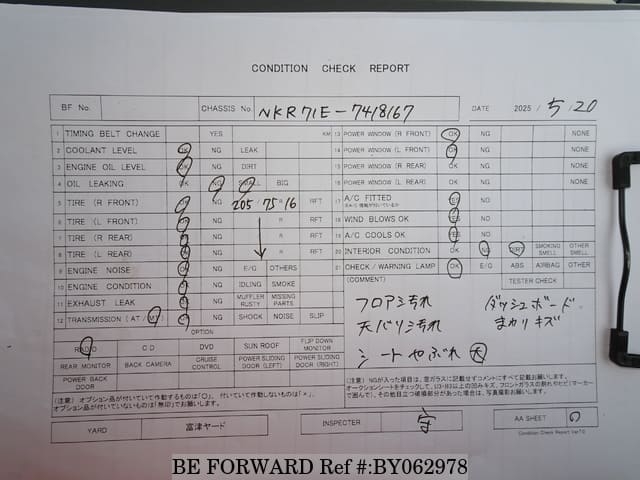 CONDITION CHECK REPORT
BF No. CHASSIS No. NKR71E-7418167 DATE 2025 / 5 / 20
1 TIMING BELT CHANGE YES KM 13 POWER WINDOW (R FRONT) OK NG NONE
2 COOLANT LEVEL OK NG LEAK 14 POWER WINDOW (L FRONT) OK NG NONE
3 ENGINE OIL LEVEL OK NG DIRT 15 POWER WINDOW (R REAR) OK NG NONE
4 OIL LEAKING OK NG SMALL BIG 16 POWER WINDOW (L REAR) OK NG NONE
5 TIRE (R FRONT) OK NG 205 / 75 R 16 RFT 17 A/C FITTED YES NO
6 TIRE (L FRONT) OK NG R RFT 18 WIND BLOWS OK YES NO
7 TIRE (R REAR) OK NG R RFT 19 A/C COOLS OK YES NO
8 TIRE (L REAR) OK NG R RFT 20 INTERIOR CONDITION OK NG DIRT SMOKING SMELL OTHER SMELL
9 ENGINE NOISE OK NG E/G OTHERS 21 CHECK / WARNING LAMP OK E/G ABS AIRBAG OTHER
10 ENGINE CONDITION OK NG IDLING SMOKE (COMMENT) TESTER CHECK
11 EXHAUST LEAK OK NG MUFFLER RUSTY MISSING PARTS
12 TRANSMISSION (AT / MT) OK NG SHOCK NOISE SLIP
フロア汚れ ダッシュボード
天バリ汚れ まわりキズ
シートやぶれ 大
OPTION
RADIO CD DVD SUN ROOF FLIP DOWN MONITOR
REAR MONITOR BACK CAMERA CRUISE CONTROL POWER SLIDING DOOR (LEFT) POWER SLIDING DOOR (RIGHT)
POWER BACK DOOR
(注意) オプション品が付いていて作動するものは「○」、付いていて作動しないものは「×」、
オプション品が付いていないものは「無印」でお願いします。
(注意) NGが入った項目は、窓ガラスに記載せずコメントにすべて記載お願いします。
YARD 富津ヤード INSPECTER 守 AA SHEET
Condition Check Report Ver7.0
BE FORWARD Ref #:BY062978